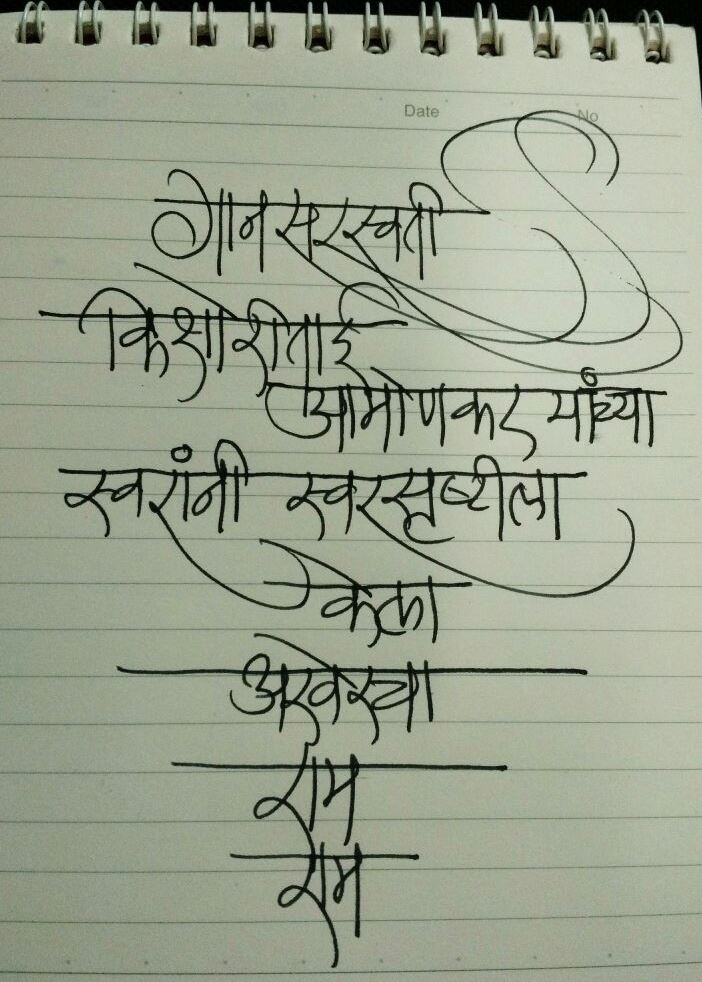 Date No
गानसरस्वती
किशोरीताई
आमोणकर यांच्या
स्वरांनी स्वरसृष्टीला
केला
अखेरचा
राम
राम